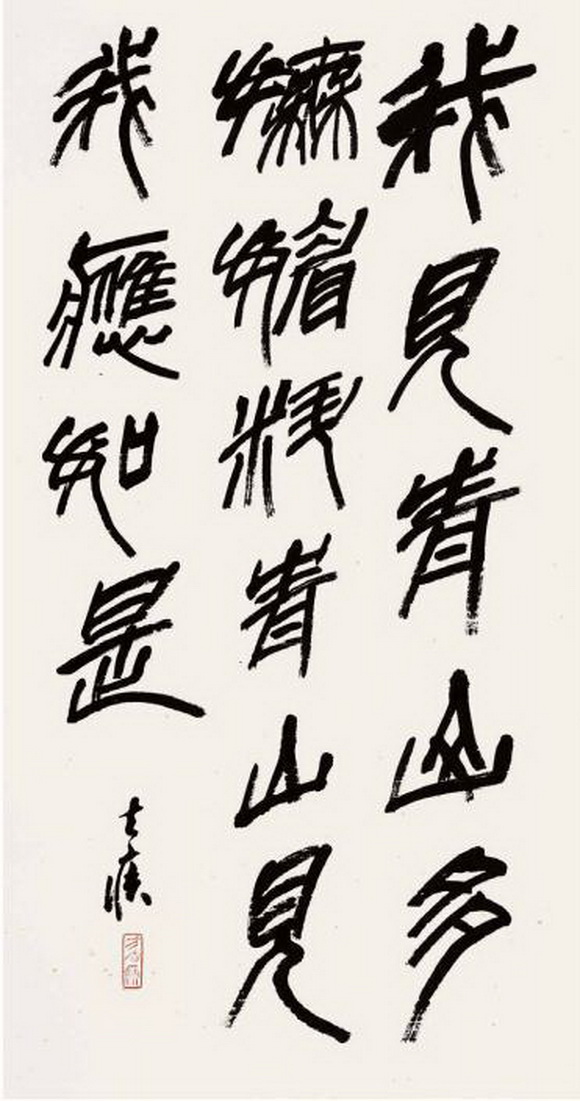 我見青山多
嫵媚料青山見
我應如是
去疾